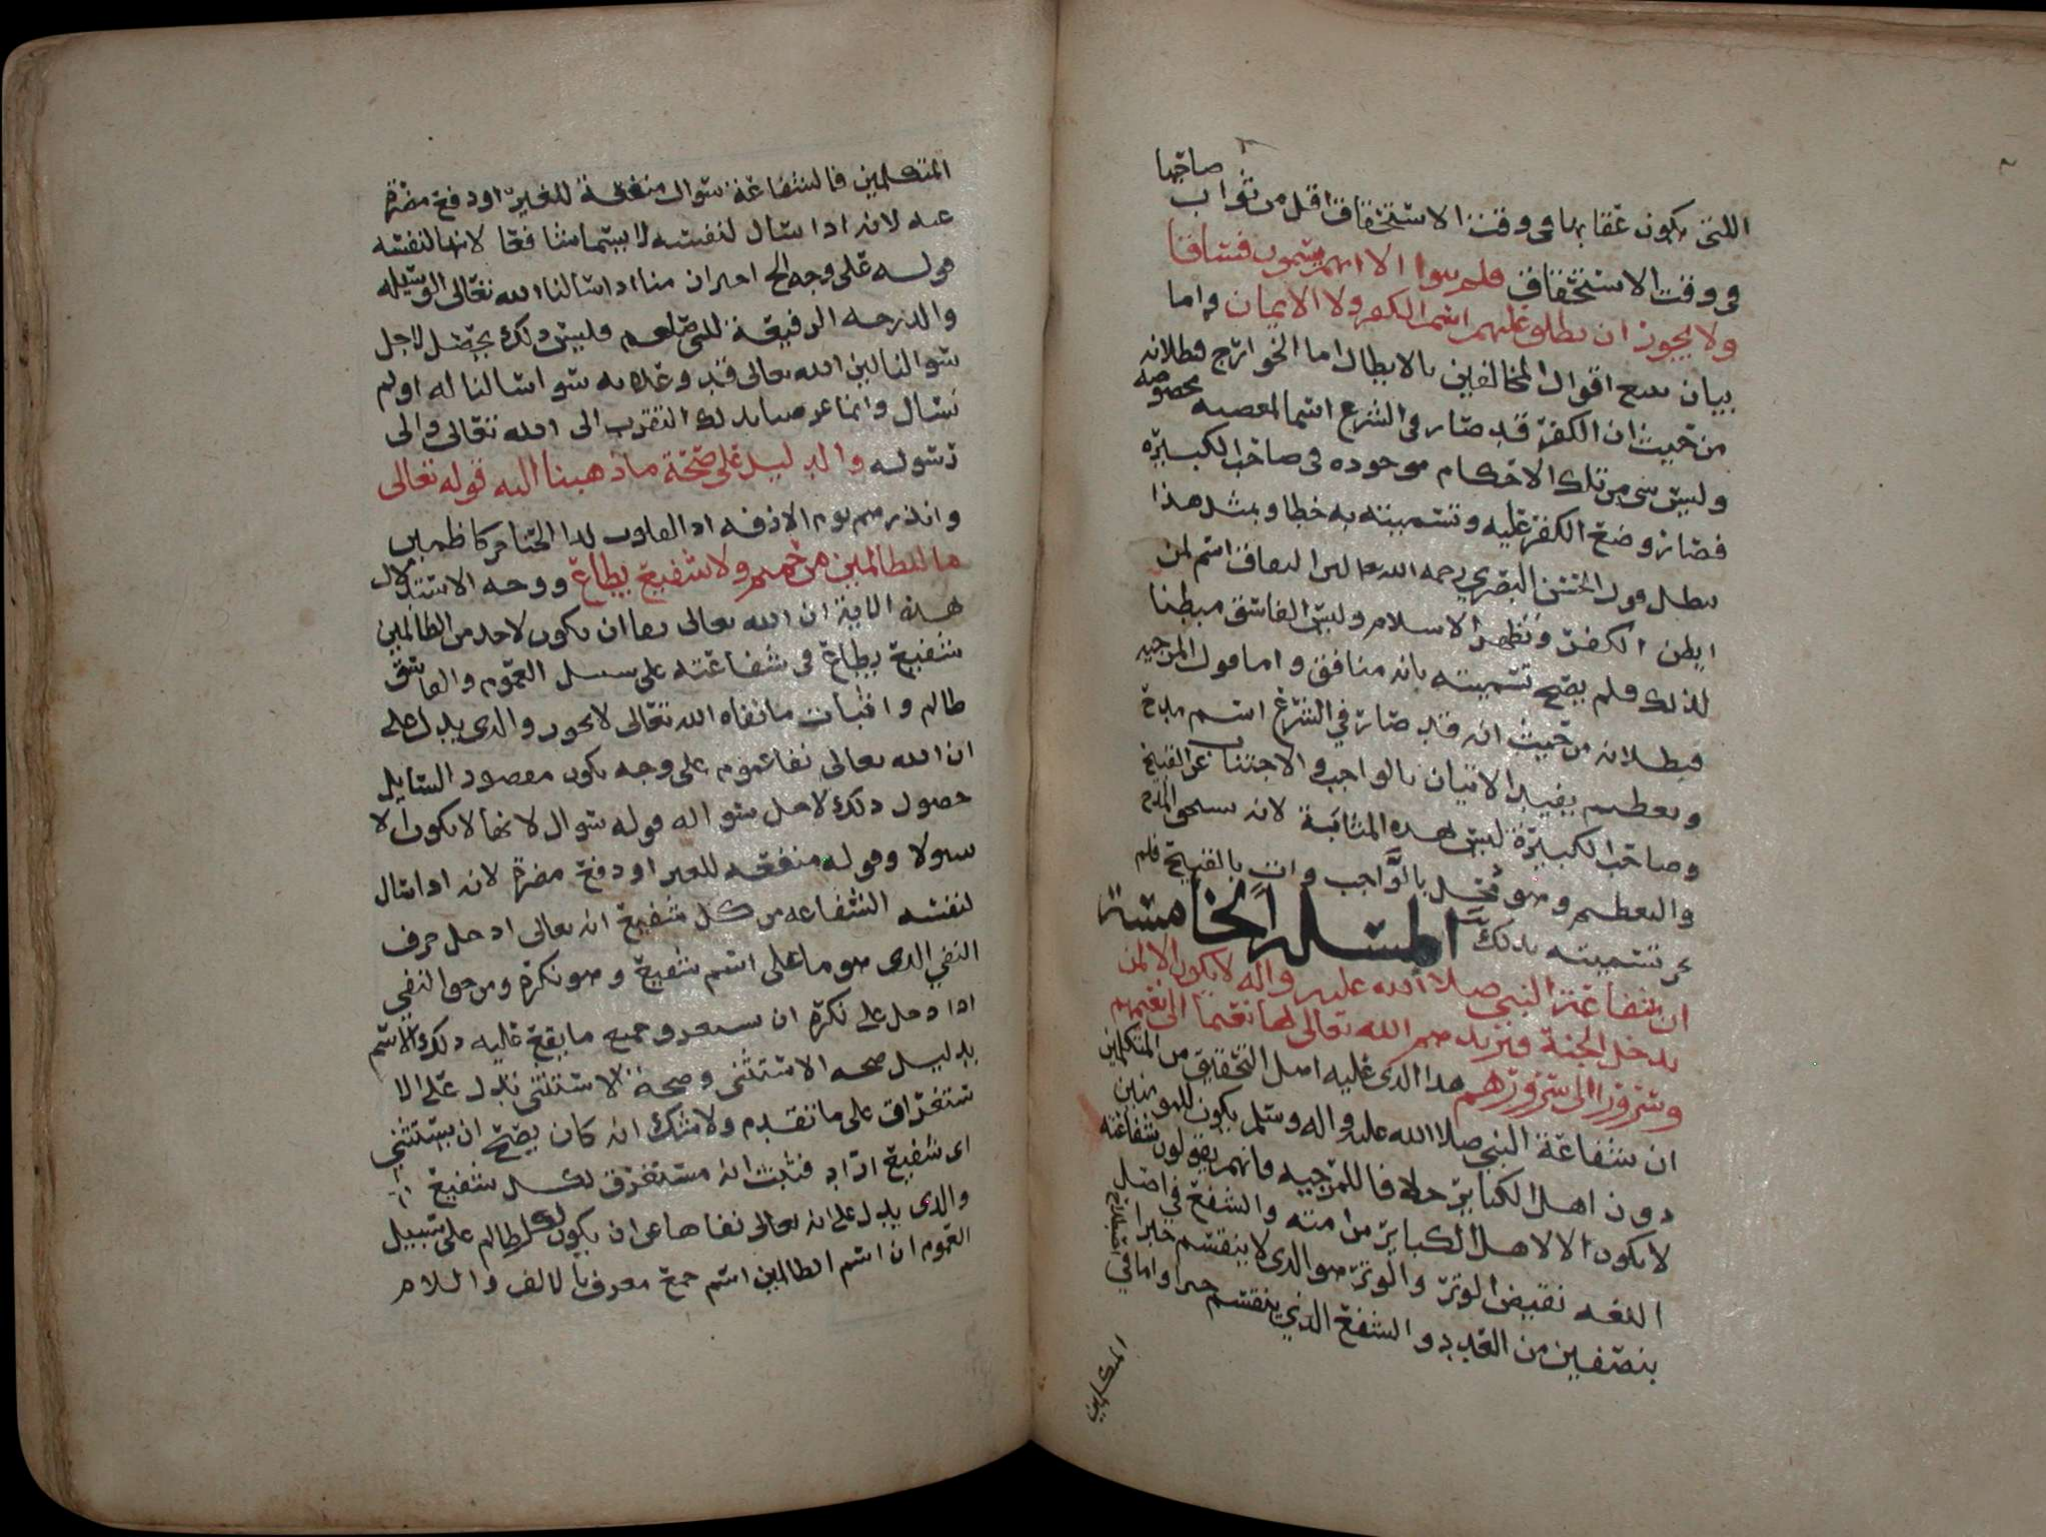 صاحبها
اللتى يكون عقابها فى وقت الاستحقاق اقل من ثواب
فى وقت الاستحقاق فلم يبق الا انهم يسمون فساقا
ولا يجوز ان يطلق عليهم اسم الكفر ولا الايمان واما
بيان تتبع اقوال المخالفين بالابطال اما الخوارج فبطلانه
من حيث ان الكفر قد صار فى الشرع اسما لمعصيه مخصوصه
وليس شى من تلك الاحكام موجوده فى صاحب الكبيرة
فصار وضع الكفر عليه وتسميته به خطا وبمثل هذا
يبطل قول الحسن البصري رحمه الله لان النفاق اسم لمن
ابطن الكفر وظهر الاسلام وليس الفاسق مبطنا
لذلك فلم يصح تسميته بانه منافق واما قول المرجيه
فبطلانه من حيث انه قد صار في الشرع اسم مدح
وتعظيم يفيد الاتيان بالواجب والاجتناب عن القبيح
وصاحب الكبيرة ليس بهذه المثابة لانه يستحق المدح
والتعظيم وهو مخل بالواجب وات بالقبيح فلم
يجز تسميته بذلك المسئلة الخامسة
ان شفاعة النبى صلا الله عليه واله لا يكون الا لمن
يدخل الجنة فيزيدهم الله تعالى بها نعيما الى نعيمهم
وسرورا الى سرورهم هذا الذى عليه اهل التحقيق من المتكلمين
ان شفاعة النبي صلا الله عليه واله وسلم يكون للمومنين
دون اهل الكبائر خلافا للمرجيه فانهم يقولون شفاعته
لا يكون الا لاهل الكبائر من امته والشفع في اصل
اللغه نقيض الوتر والوتر هو الذى لا ينقسم جبرا
بنصفين من العدد والشفع الذي ينقسم جبرا واما في
المتكلمين
المتكلمين فالشفاعة سوال منفعة للغير او دفع مضرة
عنه لانه اذا سال لنفسه لا يسما شافعا لانها لنفسه
قوله على وجه احتراز منا اذا سالنا الله تعالى الوسيله
والدرجه الرفيعة للنبى صلعم فليس ذلك يحصل لاجل
سوالنا لان الله تعالى قد وعده به سوا سالنا له اولم
نسال وانما غرضنا بذلك التقرب الى الله تعالى والى
رسوله والدليل على صحة ما ذهبنا اليه قوله تعالى
وانذرهم يوم الازفه اذ القلوب لدا الحناجر كاظمين
ما للظالمين من حميم ولا شفيع يطاع ووجه الاستدلال
بهذه الاية ان الله تعالى نفا ان يكون لاحد من الظالمين
شفيع يطاع فى شفاعته على سبيل العموم والفاسق
ظالم واثبات ما نفاه الله تعالى لا يجوز والذى يدل على
ان الله تعالى نفا عموم على وجه يكون مقصود السايل
حصول ذلك لاجل سواله قوله سوال لانها لا يكون الا
سولا وقوله منفعه للغير او دفع مضرة لانه اذا سال
لنفسه الشفاعه من كل شفيع انه تعالى ادخل حرف
النفي الذى هو ما على اسم شفيع وهو نكرة ومن حق النفي
اذا دخل على نكرة ان يستغرق جميع ما يقع عليه ذلك الاسم
بدليل صحه الاستثنى وصحة الاستثنى تدل على الا
ستغراق على ما تقدم ولا شك انه كان يصح ان يستثني
اى شفيع اراد فثبت انه مستغرق لكل شفيع
والذى يدل على انه تعالى نفاها عن ان يكون لكل ظالم على سبيل
العموم ان اسم الظالمين اسم جمع معرف بالالف واللام